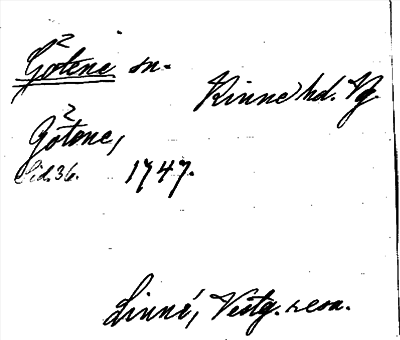 Götene sn.
Kinne hd. Vg.
Götone,
Sid. 36. 1747.
Linné, Vestg. resa.